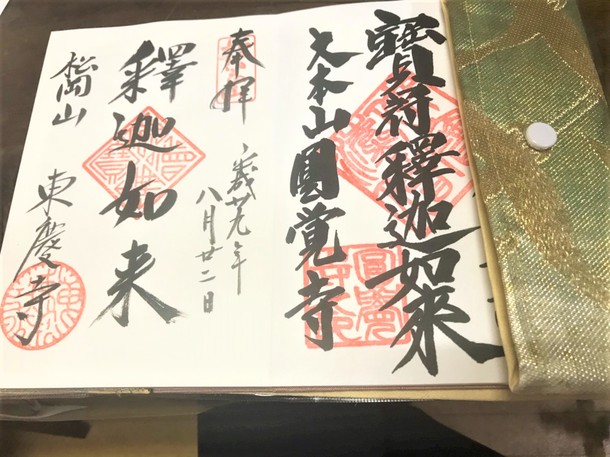 寶冠釋迦如來
大本山圓覚寺
奉拝
平成廿九年
八月廿二日
釋迦如来
松岡山
東慶寺